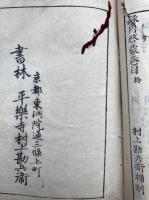 村上勘兵衛補刻
京都東洞院通三條上町
書林 平樂寺村上勘兵衛